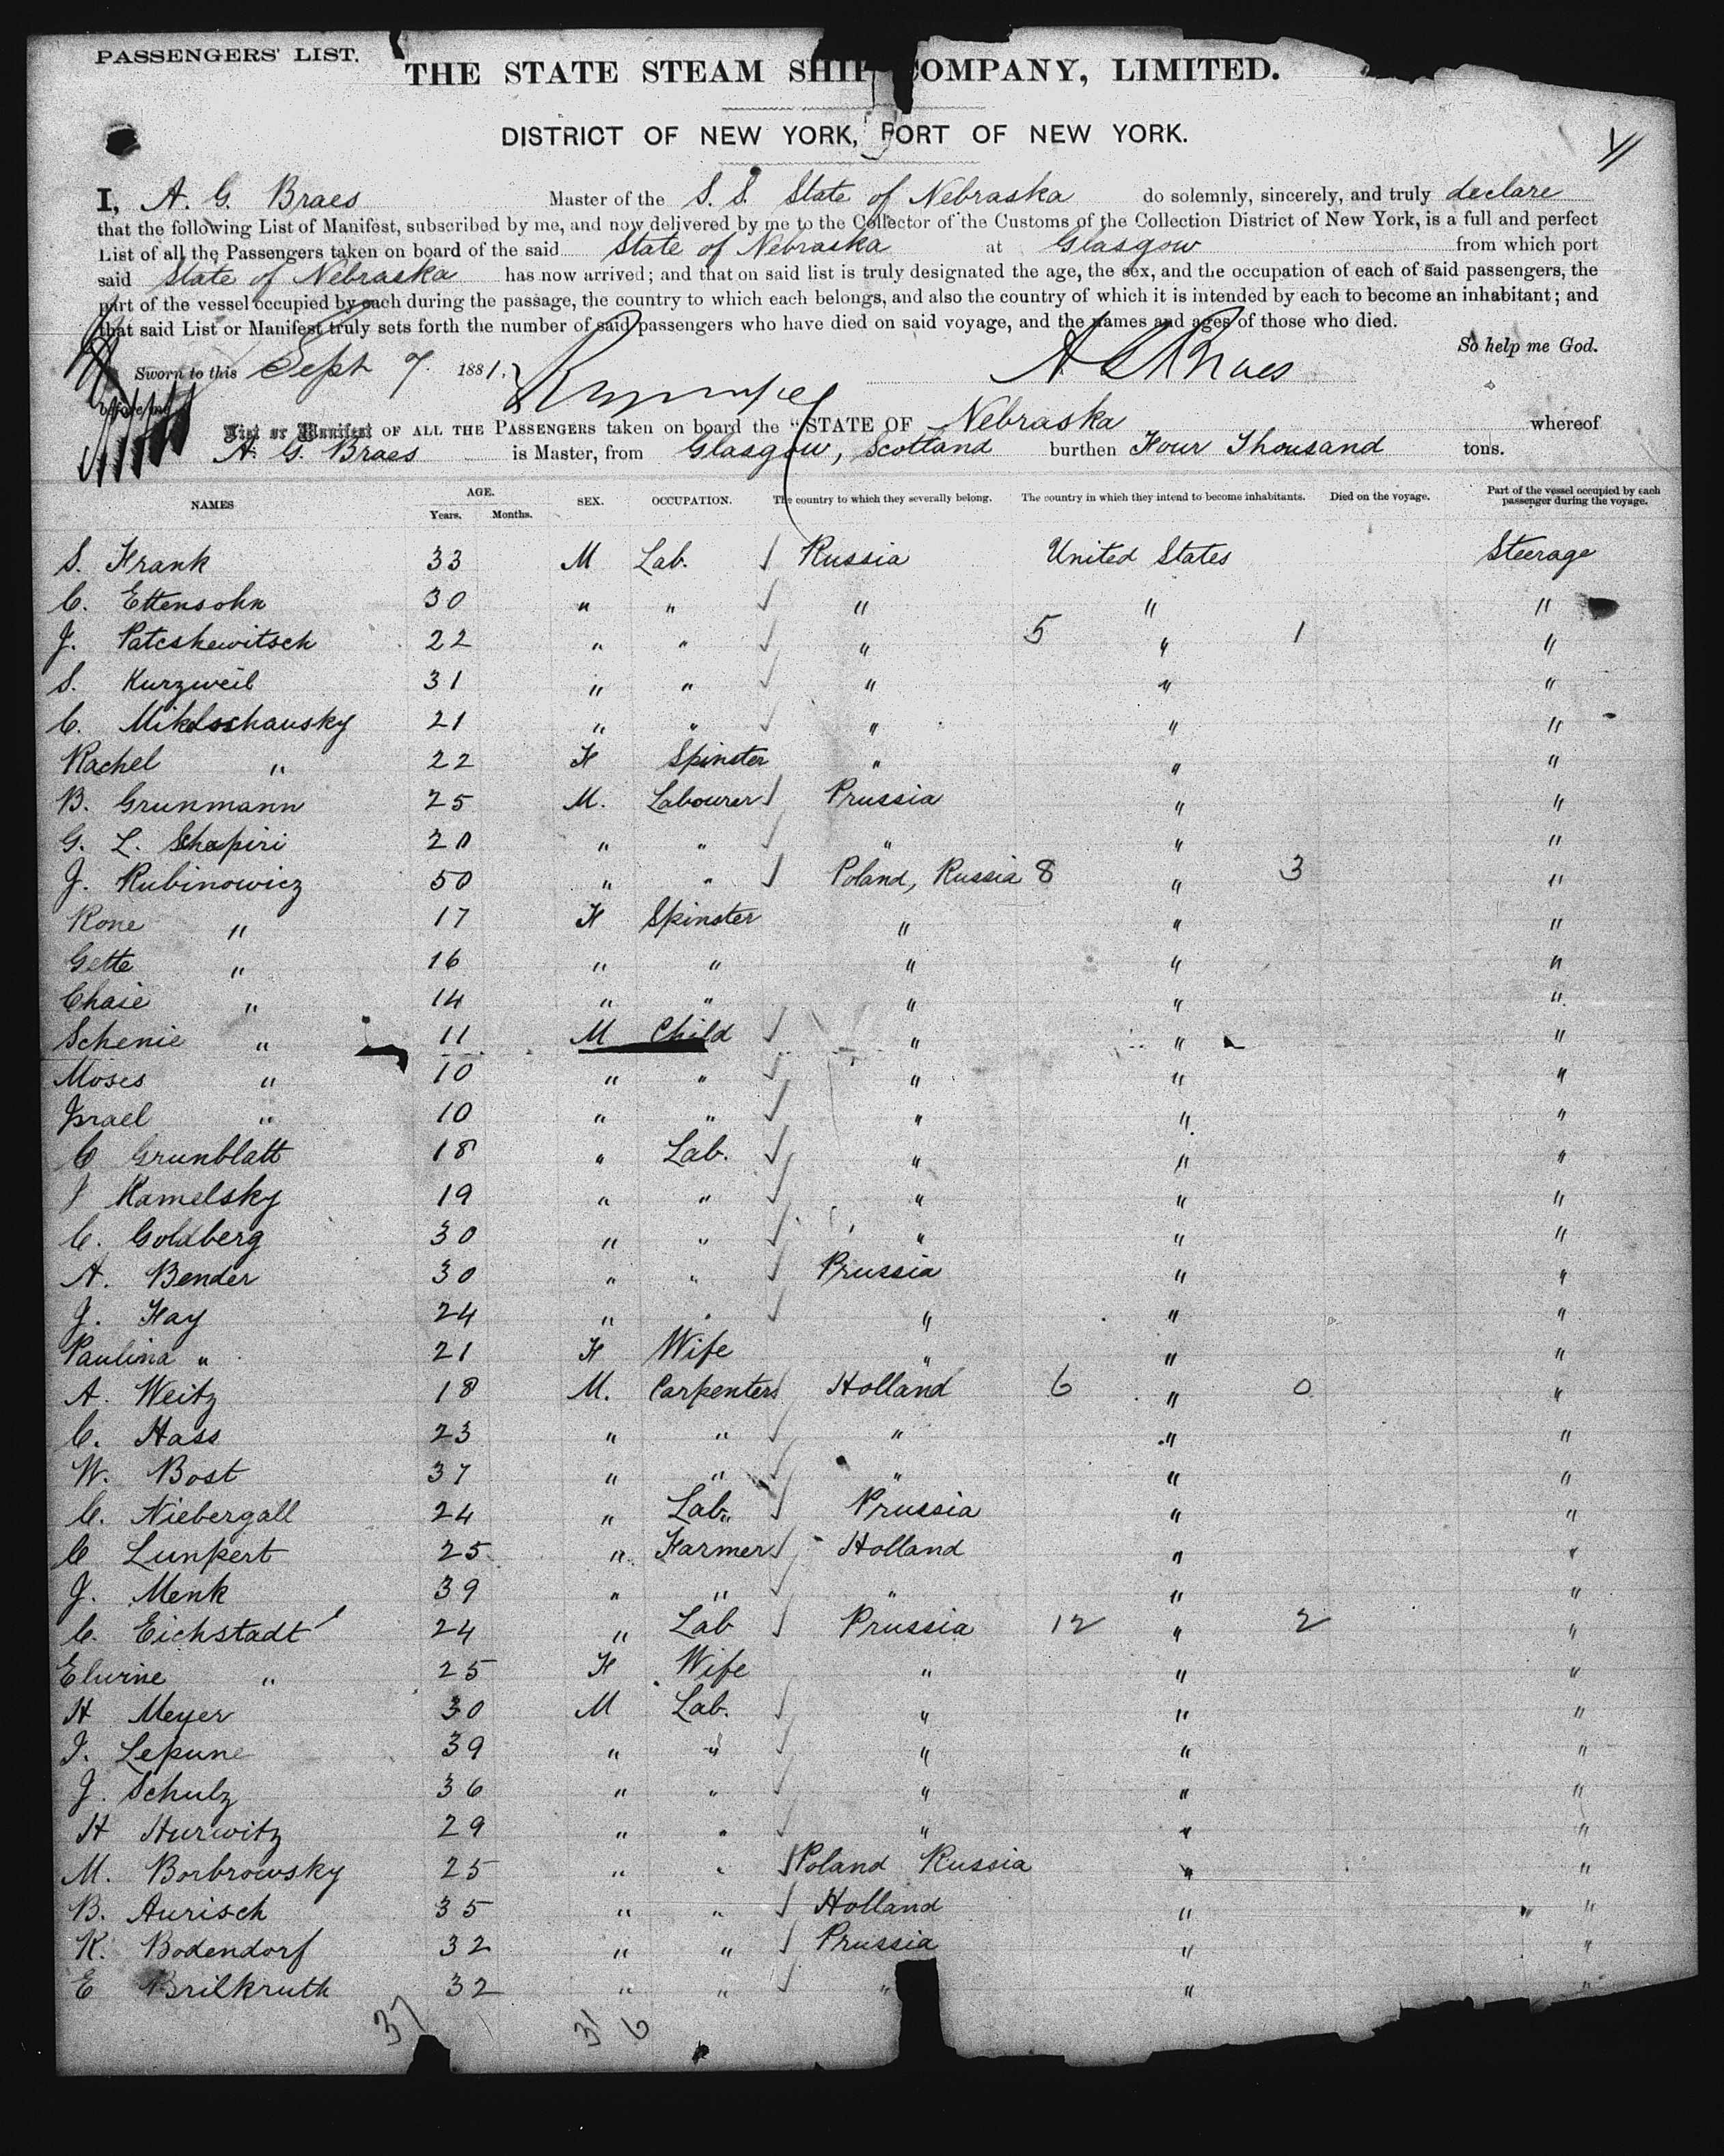 PASSENGERS' LIST.
THE STATE STEAM SHIP COMPANY, LIMITED.
DISTRICT OF NEW YORK, PORT OF NEW YORK.
I, A. G. Braes Master of the S. S. State of Nebraska do solemnly, sincerely, and truly declare
that the following List of Manifest, subscribed by me, and now delivered by me to the Collector of the Customs of the Collection District of New York, is a full and perfect
List of all the Passengers taken on board of the said State of Nebraska at Glasgow from which port
said State of Nebraska has now arrived; and that on said list is truly designated the age, the sex, and the occupation of each of said passengers, the
part of the vessel occupied by each during the passage, the country to which each belongs, and also the country of which it is intended by each to become an inhabitant; and
that said List or Manifest truly sets forth the number of said passengers who have died on said voyage, and the names and ages of those who died.
So help me God.
Sworn to this Sept 7. 1881. A G Braes
before me
List or Manifest OF ALL THE PASSENGERS taken on board the "STATE OF Nebraska whereof
A. G. Braes is Master, from Glasgow, Scotland burthen Four Thousand tons.
NAMES AGE. Years. Months. SEX. OCCUPATION. The country to which they severally belong. The country in which they intend to become inhabitants. Died on the voyage. Part of the vessel occupied by each passenger during the voyage.
S. Frank 33 M Lab. Russia United States Steerage
C. Ettensohn 30 " " " " "
J. Patcshewitsch 22 " " " 5 " 1 "
S. Kurzweil 31 " " " " "
C. Mikolschausky 21 " " " " "
Rachel " 22 F Spinster " " "
B. Grunmann 25 M. Labourer Prussia " "
G. L. Shapiri 20 " " " " "
J. Rubinowicz 50 " " Poland, Russia 8 " 3 "
Rone " 17 F Spinster " " "
Gette " 16 " " " " "
Chaie " 14 " " " " "
Schenie " 11 M Child " " "
Moses " 10 " " " " "
Israel " 10 " " " " "
C Grunblatt 18 " Lab. " " "
J Kamelsky 19 " " " " "
C. Goldberg 30 " " " " "
A. Bender 30 " " Prussia " "
J. Fay 24 " " " " "
Paulina " 21 F Wife " " "
A. Weitz 18 M. Carpenter Holland 6 " 0 "
C. Hass 23 " " " " "
W. Bost 37 " " " " "
C. Niebergall 24 " Lab. Prussia " "
C Lunpert 25 " Farmer Holland " "
J. Menk 39 " " " " "
C. Eichstadt 24 " Lab Prussia 12 " 2 "
Elwine " 25 F Wife " " "
H Meyer 30 M Lab. " " "
I. Lepune 39 " " " " "
J. Schulz 36 " " " " "
H Hurwitz 29 " " " " "
M. Borbrowsky 25 " " Poland Russia " "
B. Aurisch 35 " " Holland " "
K. Bodendorf 32 " " Prussia " "
E Brilkruth 32 " " " " "
37 31 6